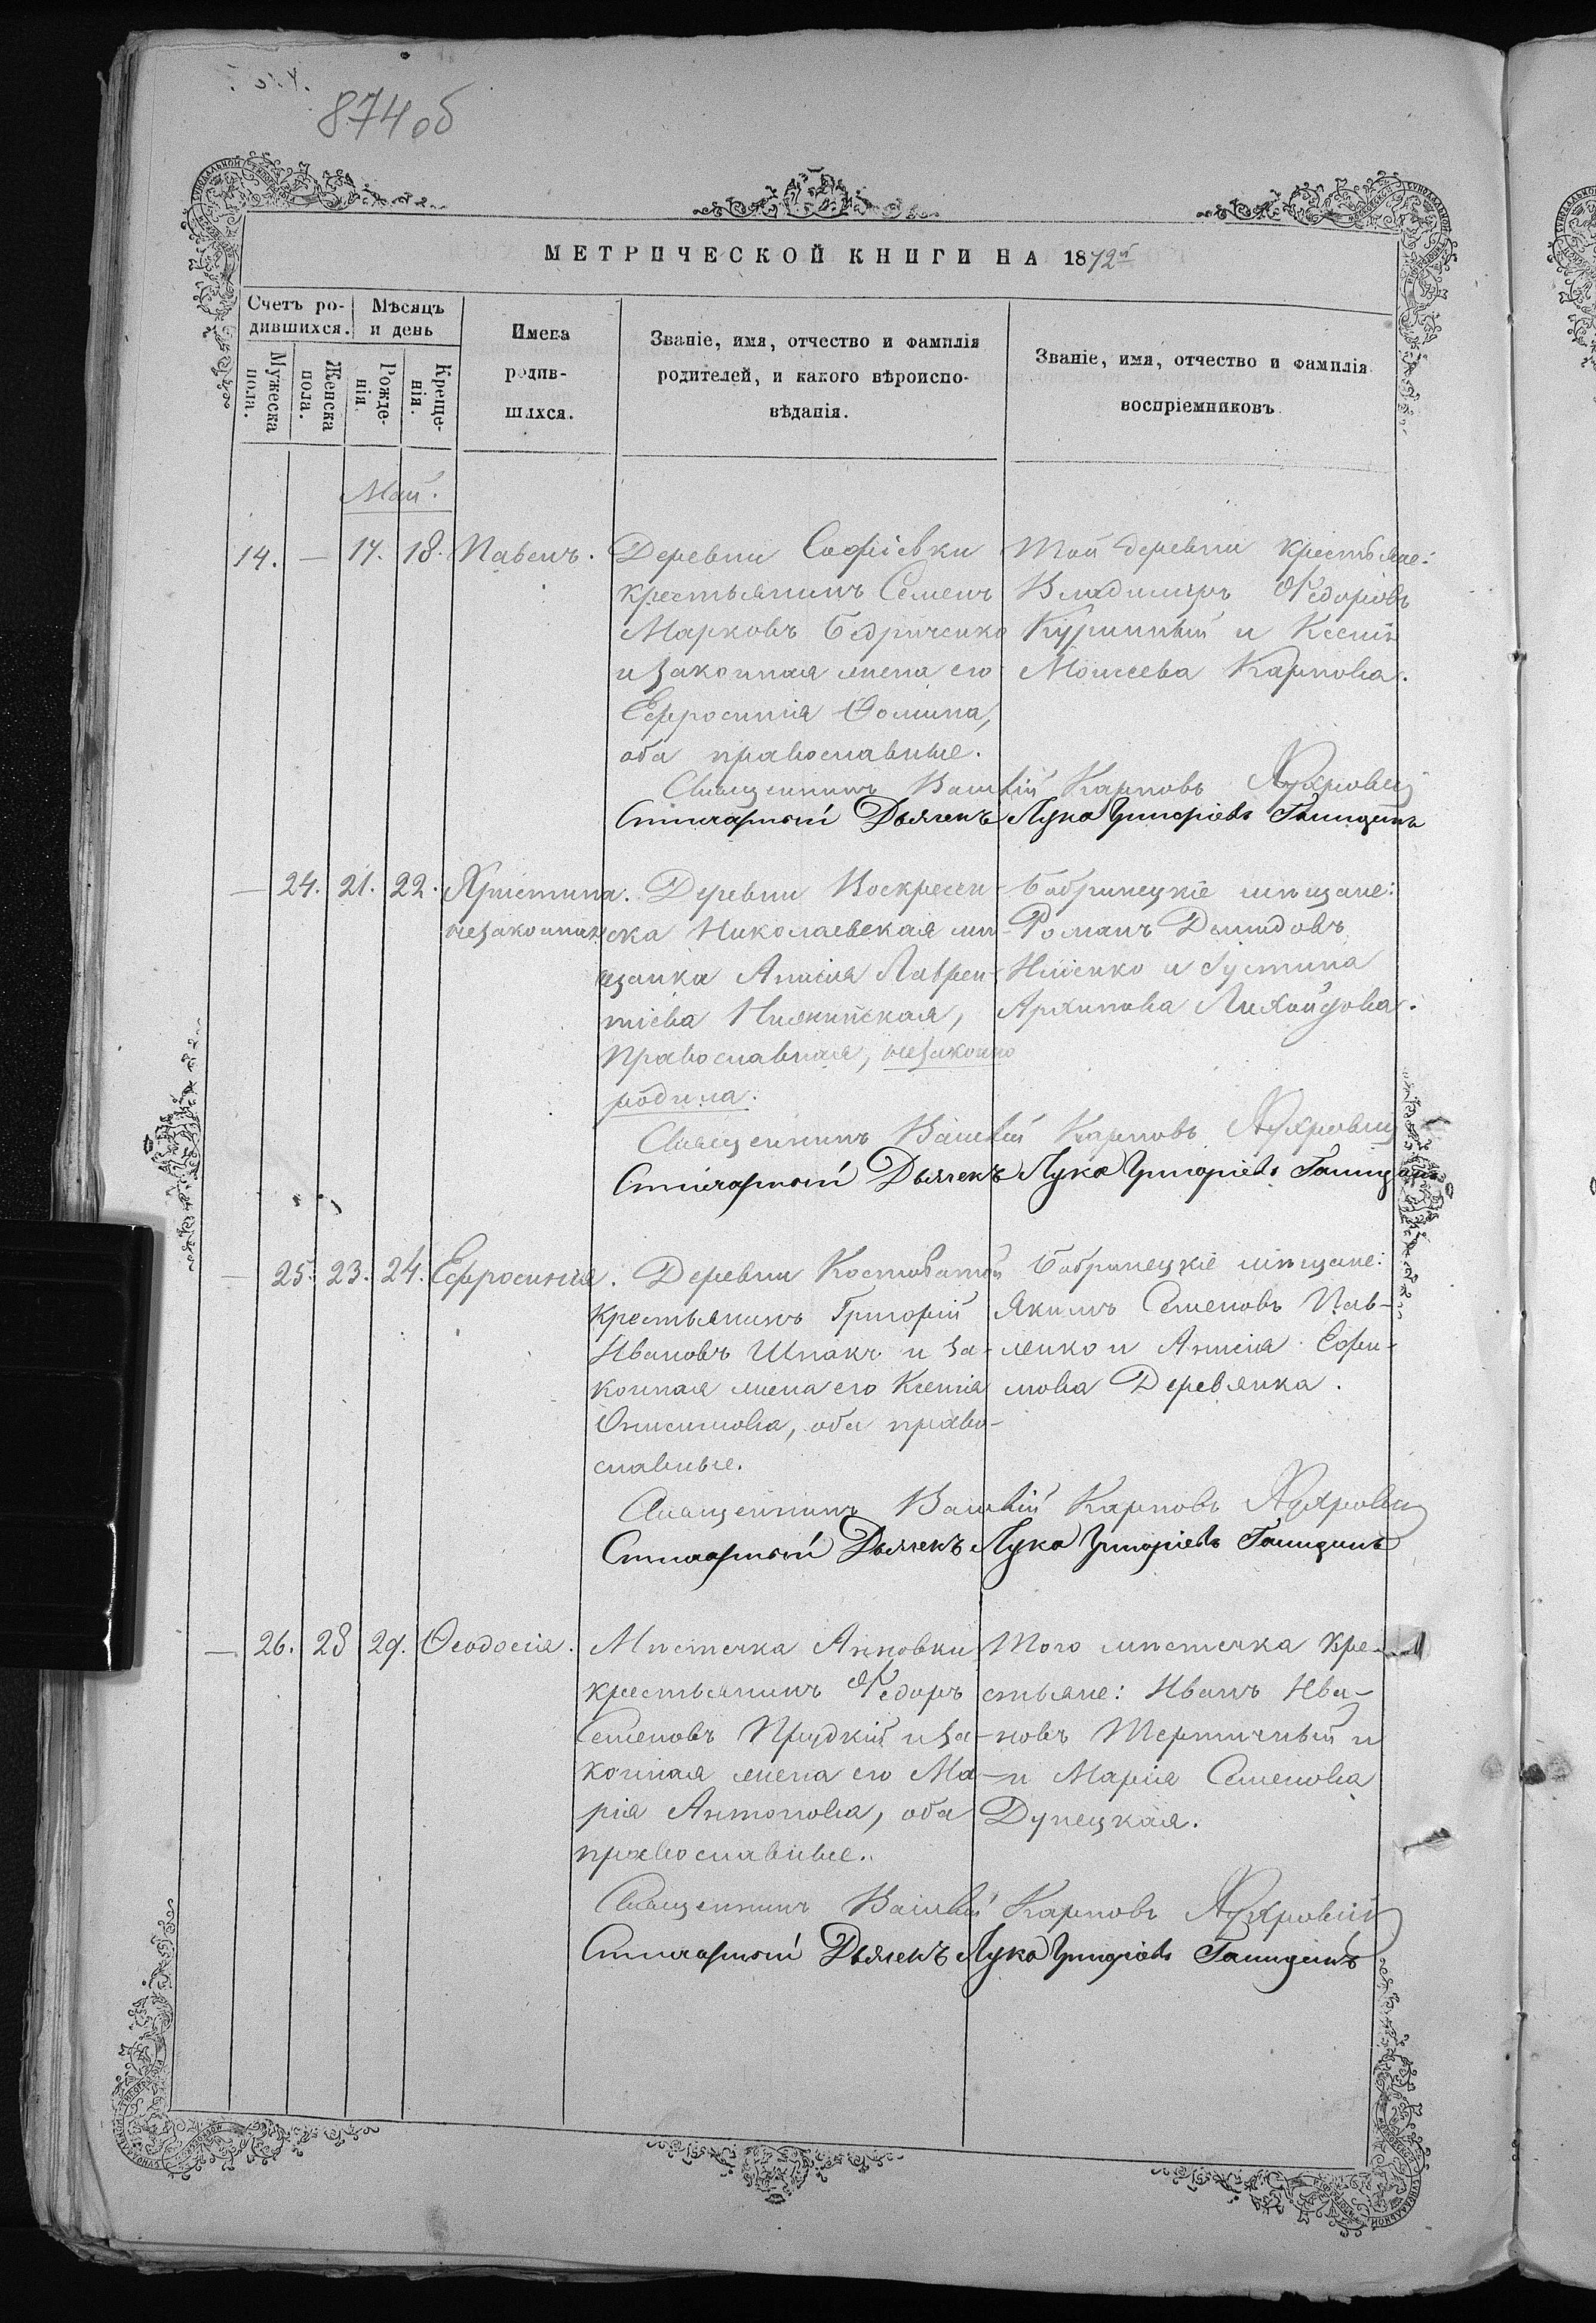 874 об
МЕТРИЧЕСКОЙ КНИГИ НА 1872й
Счетъ ро-
дившихся.
Мѣсяцъ
и день
Мужеска
пола.
Женска
пола.
Рожде-
нія.
Креще-
нія.
Имена
родив-
шихся.
Званіе, имя, отчество и фамилія
родителей, и какого вѣроиспо-
вѣданія.
Званіе, имя, отчество и фамилія
воспріемниковъ
Май.
14. — 17. 18. Павелъ.
Деревни Софіевки
крестьянинъ Семенъ
Марковъ Бедриченко
и законная жена его
Ефросинія Фомина,
оба православные.
Той деревни крестьяне:
Владиміръ Федоровъ
Куринный и Ксенія
Моисеева Карпова.
Священникъ Василій Карповъ
Стихарный Дьячекъ Лука Григоріевъ Голицинъ
— 24. 21. 22. Христина.
незаконная
Деревни Воскресен-
ска Николаевская мѣ-
щанка Анисія Лаврен-
тіева
православная, незаконно
родила.
Бобринецкіе мѣщане:
Романъ Демидовъ
и Іустина
Архипова
Священникъ Василій Карповъ
Стихарный Дьячекъ Лука Григоріевъ Голицинъ
— 25. 23. 24. Ефросинія.
Деревни Костоватой
крестьянинъ Григорій
Ивановъ Шпакъ и за-
конная жена его Ксенія
Онисимова, оба право-
славные.
Бобринецкіе мѣщане:
Якимъ Семеновъ Пав-
ленко и Анисія Ефи-
мова Деревянка.
Священникъ Василій Карповъ
Стихарный Дьячекъ Лука Григоріевъ Голицинъ
— 26. 28 29. Феодосія.
Мѣстечка Анновки
крестьянинъ Федоръ
Семеновъ Прудкій и за-
конная жена его Ма-
рія Антонова, оба
православные.
Того мѣстечка кре-
стьяне: Иванъ Ива-
новъ Терничный и
— и Марія Семенова
Дунецкая.
Священникъ Василій Карповъ
Стихарный Дьячекъ Лука Григоріевъ Голицинъ